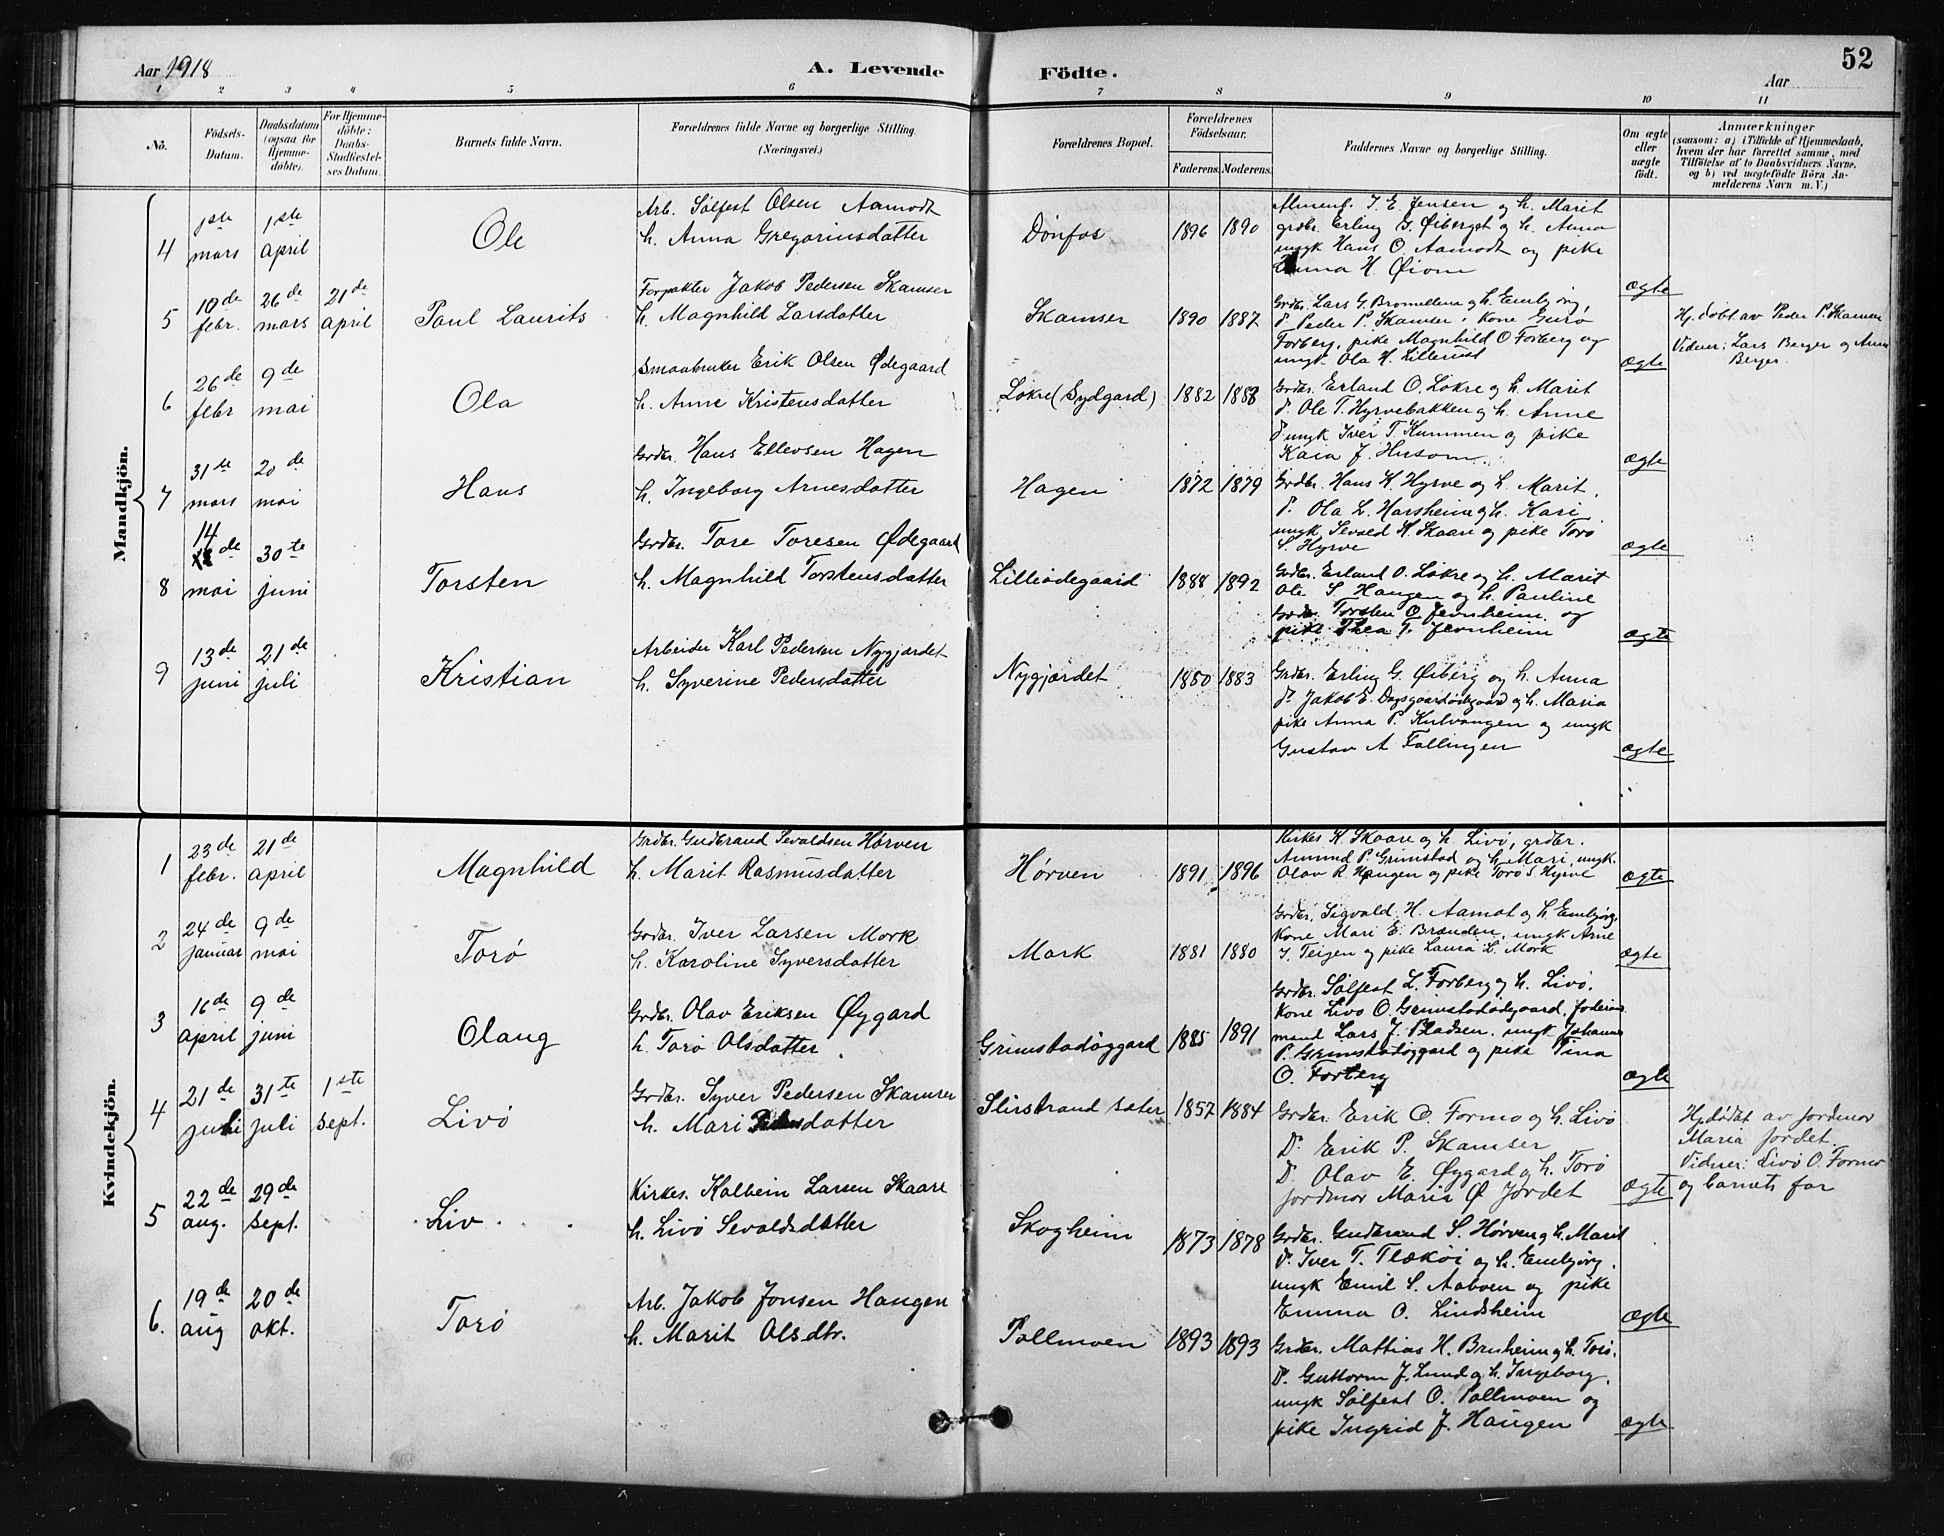 Aar 1918
A. Levende Födte.
Aar
52
1 2 3 4 5 6 7 8 9 10 11
No.
Födsels-
Datum.
Daabsdatum
(ogsaa for
Hjemme-
döbte).
For Hjemme-
döbte:
Daabs-
Stadfæstel-
ses Datum.
Barnets fulde Navn.
Forældrenes fulde Navne og borgerlige Stilling.
(Næringsvei.)
Forældrenes Bopæl.
Forældrenes
Födselsaar.
Faderens. Moderens.
Faddernes Navne og borgerlige Stilling.
Om ægte
eller
uægte
födt.
Anmærkninger
(saasom: a) i Tilfælde af Hjemmedaab,
hvem der har forrettet samme, med
Tilföielse af to Daabsvidners Navne.
og b) ved uægtefödte Börn An-
melderens Navn m. V.)
Mandkjön.
4
1ste
mars
1ste
april
Ole
Arb. Sölfest Olsen Aamodt
h. Anna Gregoriusdatter
Dønfos
1896 1890
Almenf. I. E. Jensen og h. Marit
grdbr. Erling G. Øiberget og h. Anna
ungk Hans O. Aamodt og pike
Anna H. Øiom
ægte
5
10de
febr.
26de
mars
21de
april
Paul Laurits
Forpakter Jakob Pedersen Skamser
h. Magnhild Larsdatter
Skamser
1890 1887
Grdbr. Lars G. Bromellem og h. Embjörg,
D. Peder P. Skamser, Kone Gurø
Forberg, pike Magnhild O Forberg og
ungk. Ola H. Lillerust
ægte
Hj.døbt av Peder P. Skamser
Vidner: Lars Berger og Anne
Berger.
6
26de
febr
9de
mai
Ola
Smaabruker Erik Olsen Ødegaard
h. Anne Kristensdatter
Løkre (Sydgard)
1882 1888
Grdbr. Erland O. Løkre og h. Marit
D. Ole T. Hyrvebakken og h. Anne
D. ungk Iver T. Kummen og pike
Kaia J. Husom
ægte
7
31te
mars
20de
mai
Hans
Grdbr. Hans Ellevsen Hagen
h. Ingeborg Arnesdatter
Hagen
1872 1879
Grdbr. Hans K. Hyrve og h. Marit,
D. Ola L. Harsheim og h. Kari
ungk Sevald K. Skaare og pike Torø
S. Hyrve
ægte
8
14
de
mai
30te
juni
Torsten
Grdbr. Tore Toresen Ødegaard
h. Magnhild Torstensdatter
Lilleødegaard
1888 1892
Grdbr. Erland O. Løkre og h. Marit
Ole S Haugen og h. Pauline
Grdbr. Torsten O. Jevnheim og
pike Thea T. Jevnheim
ægte
9
13de
juni
21de
juli
Kristian
Arbeider Karl Pedersen Nygjærdet
h. Syverine Pedersdatter
Nygjærdet
1880 1883
Grdbr. Erling G. Øiberg og h. Anna
D. Jakob E. Dagsgaardødegaard og h. Maria
pike Anna P. Kulvangen og ungk
Gustav A Fallingen
ægte
Kvindekjön.
1
23de
febr.
21de
april
Magnhild
Grdbr. Gudbrand Sevaldsen Hørven
h. Marit Rasmusdatter
Hørven
1891 1896
Kirkes K. Skaare og h. Livø, grdbr.
Amund P. Grimstad og h. Mari, ungk.
Olav R. Haugen og pike Torø S. Hyrve
ægte
2
24de
januar
9de
mai
Torø
Grdbr. Iver Larsen Mork
h. Karoline Syversdatter
Mork
1881 1880
Grdbr. Sigvald H. Aamot og h. Embjørg,
Kone Mari E. Brænden, ungk Arne
I. Teigen og pike Laura L. Mork
ægte
3
16de
april
9de
juni
Olaug
Grdbr. Olav Eriksen Øygard
h. Torø Olsdatter
Grimstadøygard
1885 1891
Grdbr. Sølfest L. Forberg og h. Livø.
Kone Livø O. Grimstadødegaard, føderaads
mand Lars J. Bladsen. ungk Johannes
P. Grimstadøygard og pike Tina
O. Forberg
ægte
4
21de
juli
31te
juli
1ste
sept.
Livø
Grdbr. Syver Pedersen Skamser
h. Mari Pedersdatter
Slirstrand sæter
1857 1884
Grdbr. Erik O Formo og h. Livø
D. Erik P. Skamser
D. Olav E. Øygard og h. Torø
Jordmor Maria Ø Jordet
ægte
Hj.døbt av jordmor
Maria Jordet.
Vidner: Livø O. Formo
og barnets far
5
22de
aug.
29de
sept.
Liv
Kirkes. Kolbein Larsen Skaare
h. Livø Sevaldsdatter
Skogheim
1873 1878
Grdbr. Gudbrand S. Hørven og h. Marit
D. Iver T. Flækøi og h. Embjørg.
ungk Emil S. Aaboen og pike
Emma O. Lindsheim
ægte
6.
19de
aug
20de
okt.
Torø
Arb. Jakob Jonsen Haugen
h. Marit Olsdtr.
Pollmoen
1893 1893
Grdbr. Mattias H. Bruheim og h. Torø.
D. Guttorm J. Lund og h. Ingeborg.
ungk Sølfest O. Pollmoen og
pike Ingrid J. Haugen
ægte